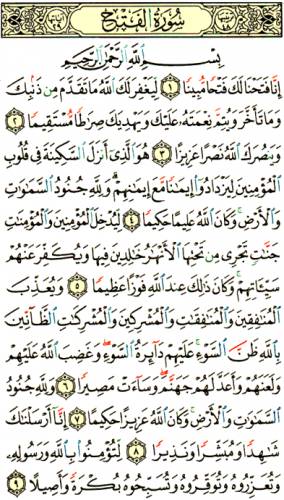 سُورَةُ الْفَتْحِ
بِسْمِ اللَّهِ الرَّحْمَٰنِ الرَّحِيمِ
إِنَّا فَتَحْنَا لَكَ فَتْحًا مُّبِينًا ١ لِّيَغْفِرَ لَكَ اللَّهُ مَا تَقَدَّمَ مِن ذَنۢبِكَ
وَمَا تَأَخَّرَ وَيُتِمَّ نِعْمَتَهُۥ عَلَيْكَ وَيَهْدِيَكَ صِرَٰطًا مُّسْتَقِيمًا ٢
وَيَنصُرَكَ اللَّهُ نَصْرًا عَزِيزًا ٣ هُوَ الَّذِىٓ أَنزَلَ السَّكِينَةَ فِى قُلُوبِ
الْمُؤْمِنِينَ لِيَزْدَادُوٓا۟ إِيمَٰنًا مَّعَ إِيمَٰنِهِمْ ۗ وَلِلَّهِ جُنُودُ السَّمَٰوَٰتِ
وَالْأَرْضِ ۚ وَكَانَ اللَّهُ عَلِيمًا حَكِيمًا ٤ لِّيُدْخِلَ الْمُؤْمِنِينَ وَالْمُؤْمِنَٰتِ
جَنَّٰتٍ تَجْرِى مِن تَحْتِهَا الْأَنْهَٰرُ خَٰلِدِينَ فِيهَا وَيُكَفِّرَ عَنْهُمْ
سَيِّـَٔاتِهِمْ ۚ وَكَانَ ذَٰلِكَ عِندَ اللَّهِ فَوْزًا عَظِيمًا ٥ وَيُعَذِّبَ
الْمُنَٰفِقِينَ وَالْمُنَٰفِقَٰتِ وَالْمُشْرِكِينَ وَالْمُشْرِكَٰتِ الظَّآنِّينَ
بِاللَّهِ ظَنَّ السَّوْءِ ۚ عَلَيْهِمْ دَآئِرَةُ السَّوْءِ ۖ وَغَضِبَ اللَّهُ عَلَيْهِمْ
وَلَعَنَهُمْ وَأَعَدَّ لَهُمْ جَهَنَّمَ ۖ وَسَآءَتْ مَصِيرًا ٦ وَلِلَّهِ جُنُودُ
السَّمَٰوَٰتِ وَالْأَرْضِ ۚ وَكَانَ اللَّهُ عَزِيزًا حَكِيمًا ٧ إِنَّآ أَرْسَلْنَٰكَ
شَٰهِدًا وَمُبَشِّرًا وَنَذِيرًا ٨ لِّتُؤْمِنُوا۟ بِاللَّهِ وَرَسُولِهِۦ
وَتُعَزِّرُوهُ وَتُوَقِّرُوهُ وَتُسَبِّحُوهُ بُكْرَةً وَأَصِيلًا ٩